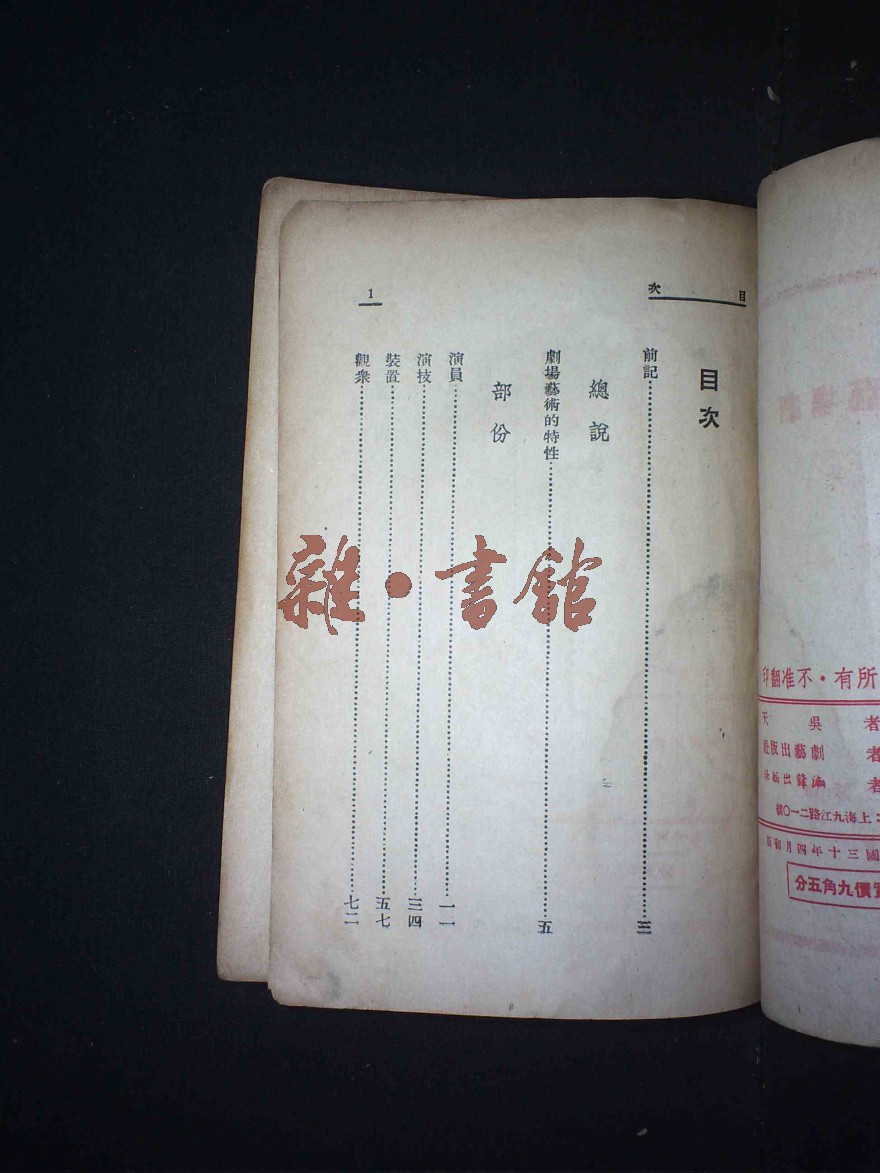 目次
1
目次
前記三
總說
劇場藝術的特性五
部份
演員一一
演技三四
裝置五七
觀衆七二
雜·書館
所有·不准翻印
者 吳天
者 劇藝出版社
者
上海九江路二一〇號
國三十年四月初版
實價九角五分